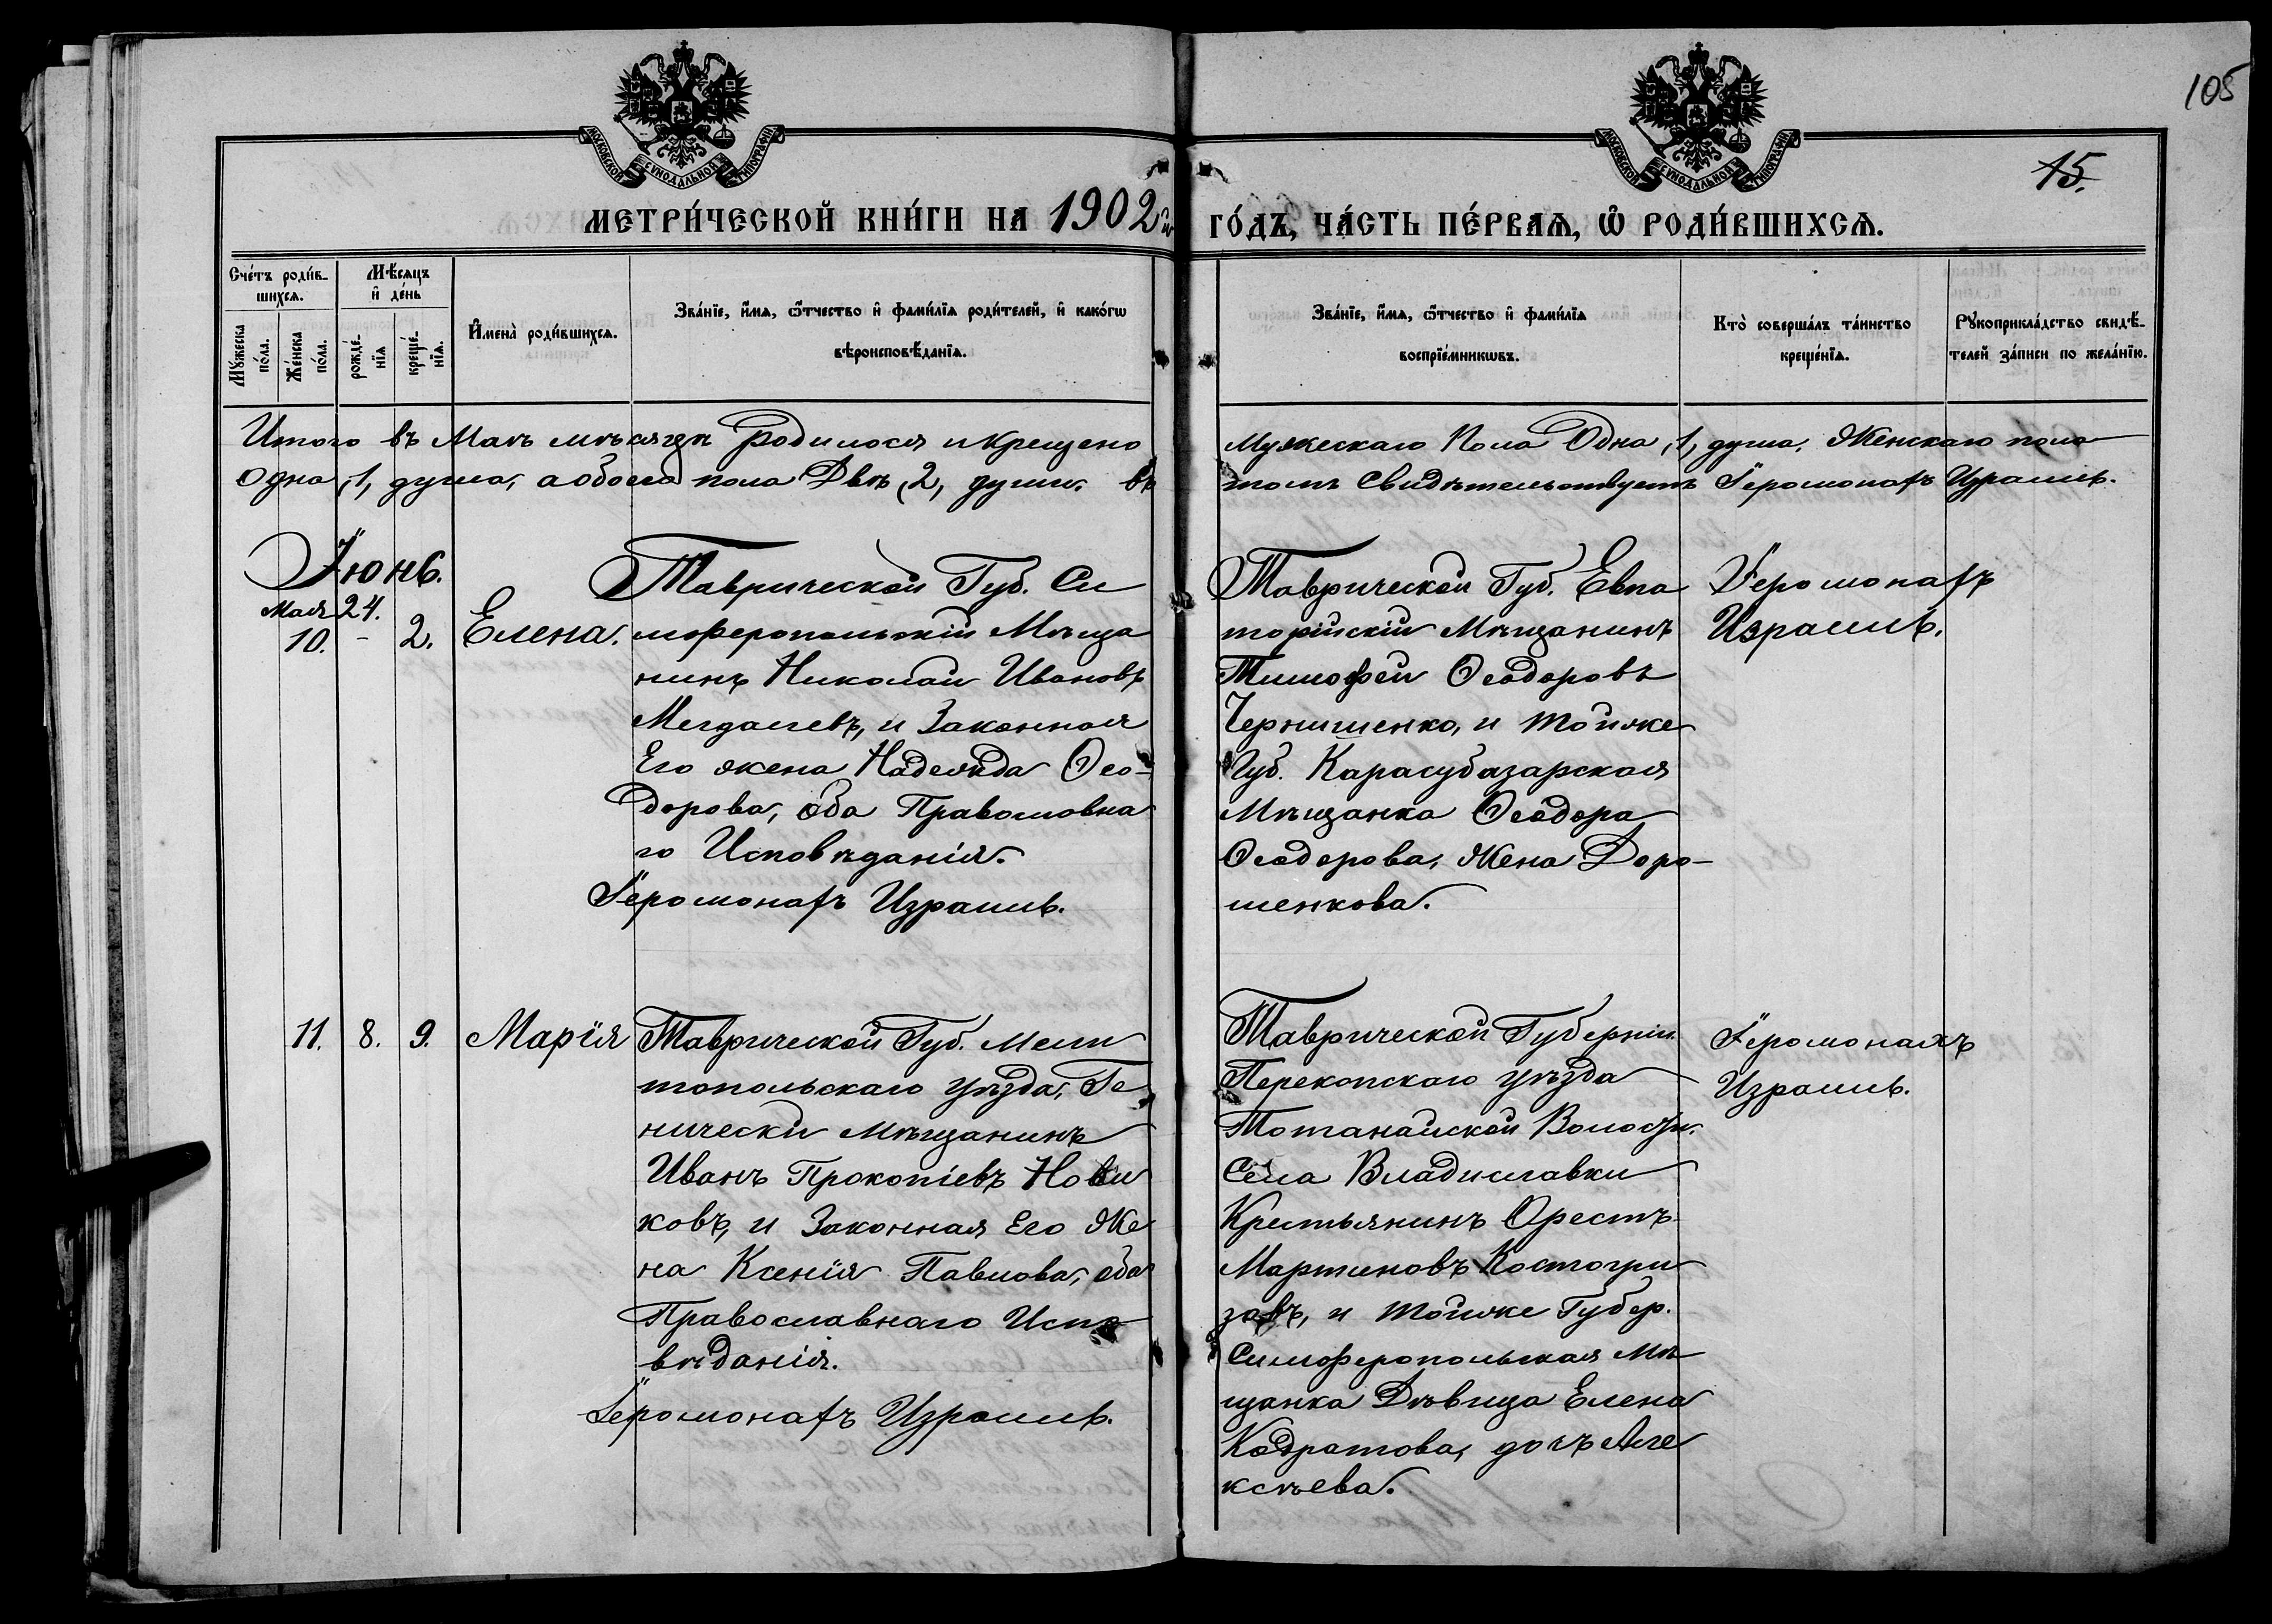 105
15.
МОСКОВСКОЙ СѴНОДАЛЬНОЙ ТИПОГРАФІИ
МОСКОВСКОЙ СѴНОДАЛЬНОЙ ТИПОГРАФІИ
МЕТРИ́ЧЕСКОЙ КНИ́ГИ НА 1902й ГО́ДЪ, ЧА́СТЬ ПЕ́РВАѦ, Ѡ РОДИ́ВШИХСѦ.
Сче́тъ роди́в-
шихсѧ.
Мѣ́сѧцъ
и҆ де́нь
Мꙋ́жеска
по́ла.
Же́нска
по́ла.
рожде́-
нїѧ
креще́-
нїѧ.
И҆мена̀ роди́вшихсѧ.
Зва́нїе, и҆́мѧ, ѻ҆́тчество и҆ фами́лїѧ роди́телей, и҆ како́гѡ
вѣроисповѣ́данїѧ.
Зва́нїе, и҆́мѧ, ѻ҆́тчество и҆ фами́лїѧ
воспрїе́мникѡвъ.
Кто̀ соверша́лъ та́инство
креще́нїѧ.
Рꙋкоприкла́дство свидѣ́-
телей за́писи по жела́нїю.
Итого въ Маѣ мѣсяцѣ родилося и крещено Мужескаго Пола Одна, 1, душа, Женскаго пола
одна, 1, душа, а обоего пола Двѣ, 2, души. въ томъ Свидѣтельствуетъ Іеромонахъ Израиль.
Іюнь.
Мая 24.
10. - 2. Елена.
Таврической Губ. Си
мферопольскій Мѣща
нинъ Николай Ивановъ
Мегдаевъ, и Законная
Его жена Надежда Ѳео-
дорова, оба Православна
го Исповѣданія.
Іеромонахъ Израиль.
Таврической Губ. Евпа
торійскій Мѣщанинъ
Тимофей Ѳеодоровъ
Чернишенко, и тойже
Губ. Карасубазарская
Мѣщанка Ѳеодора
Ѳеодорова, Жена Доро-
шенкова.
Іеромонахъ
Израиль.
11. 8. 9. Марія
Таврической Губ. Мели
топольскаго уѣзда, Ге
нически мѣщанинъ
Иванъ Прокопіевъ Нови
ковъ, и Законная Его Же
на Ксенія Павлова, оба
Православнаго Испо
вѣданія.
Іеромонахъ Израиль.
Таврической Губерніи
Перекопскаго уѣзда
Тотанайской Волости.
Села Владиславки
Крестьянинъ Орестъ
Мартиновъ Костогри
зовъ, и тойже Губер.
Симферопольская Мѣ
щанка Дѣвица Елена
Кодратова, дочъ Але
ксѣева.
Іеромонахъ
Израиль.